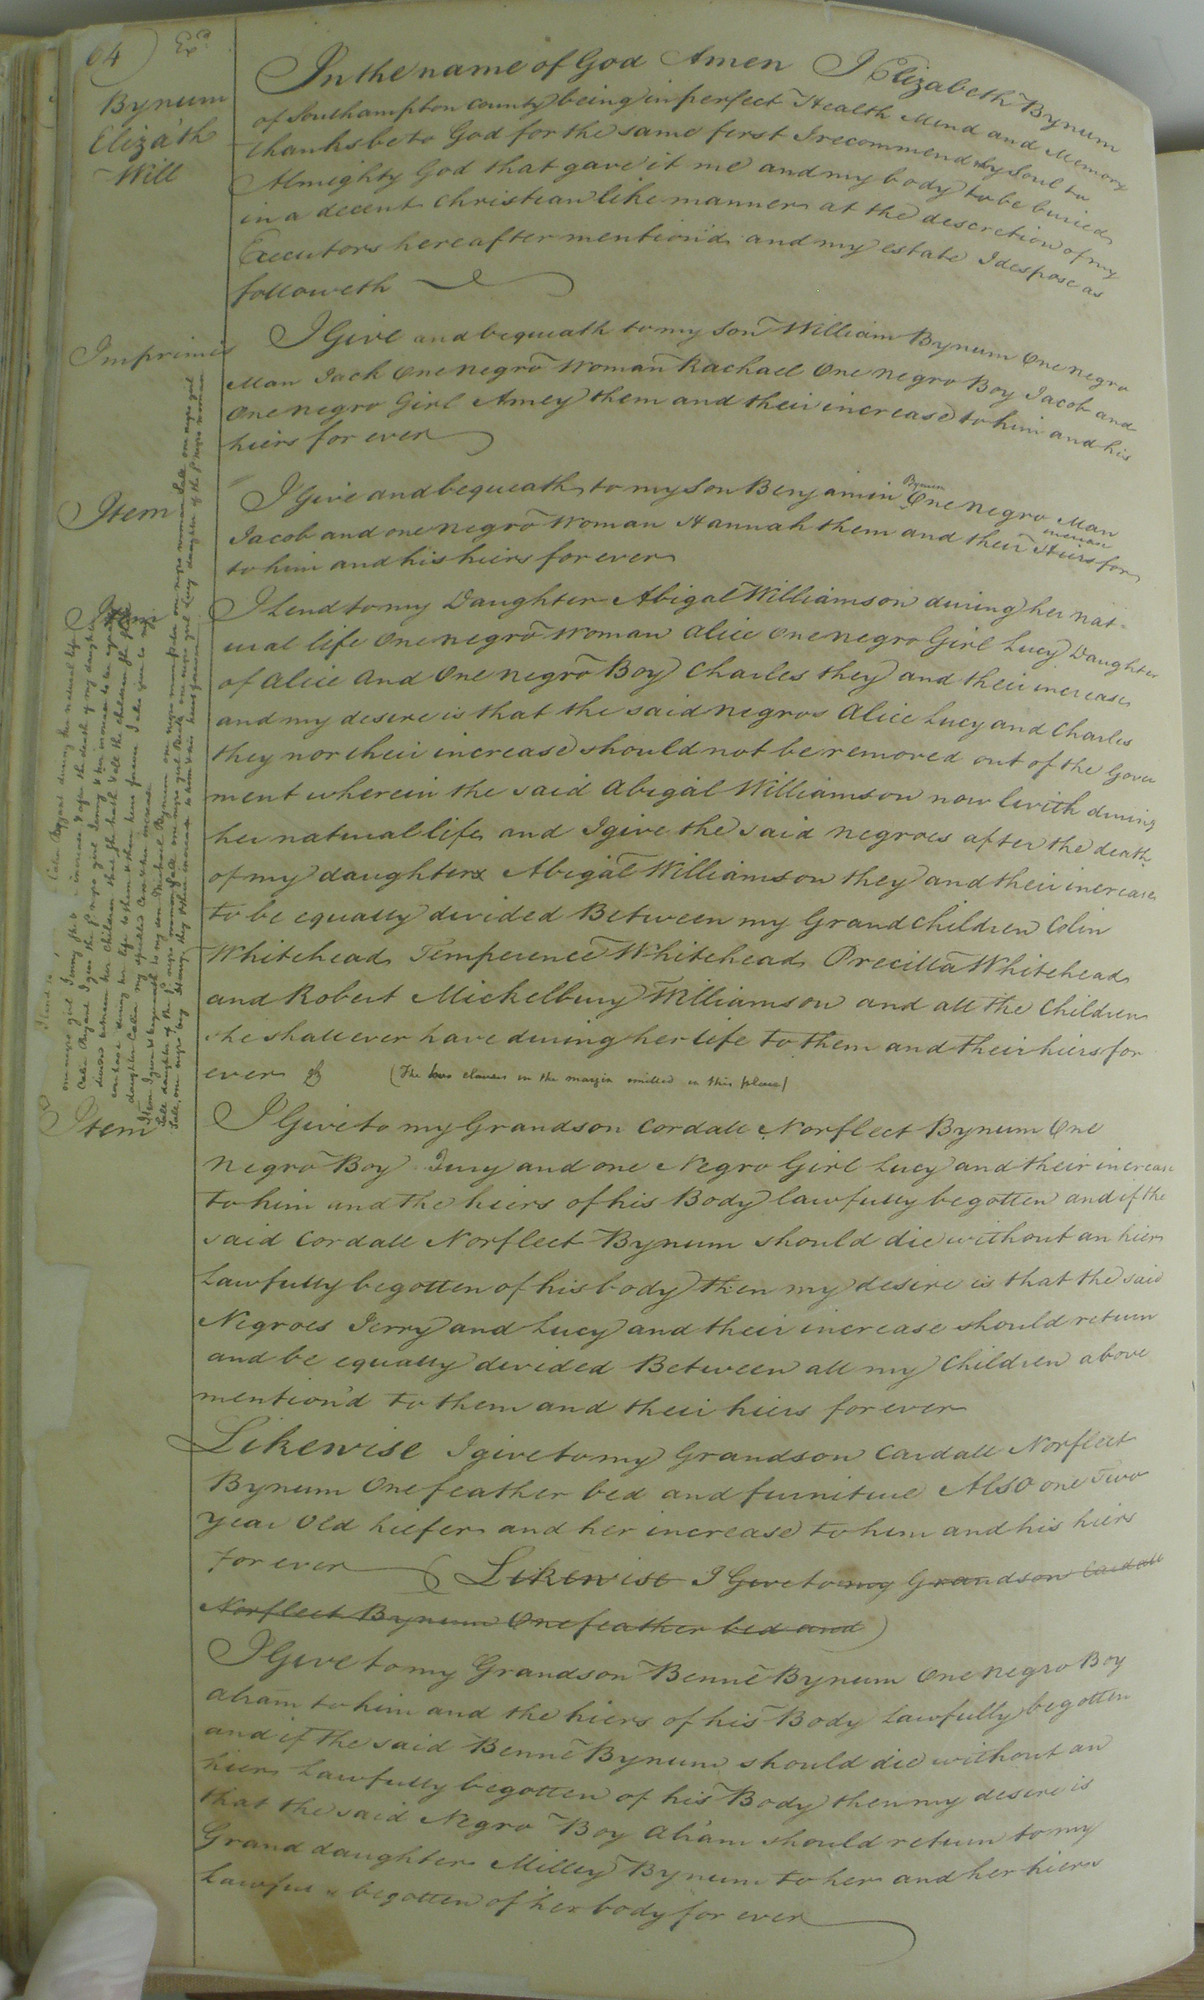 64
Exd
Bynum
Elizath
Will
In the name of God Amen I Elizabeth Bynum
of Southampton County being in perfect Health Mind and Memory
thanks be to God for the same first I recommend my Soul to
Almighty God that gave it me and my body to be buried
in a decent Christian like manner at the descretion of my
Executors hereafter mention'd and my estate I despose as
followeth
Imprimis
I Give and bequeath to my Son William Bynum One negro
Man Jack One negro Woman Rachael One negro Boy Jacob and
One negro Girl Amey them and their increase to him and his
hiers for ever
Item
I Give and bequeath to my Son Benjamin Bynum One negro Man
Jacob and one negro Woman Hannah them and their increase Heirs for
to him and his hiers for ever
Item
I Lend to my Daughter Abigal Williamson during her nat-
ural life One negro Woman Alice One negro Girl Lucy Daughter
of Alice And One negro Boy Charles they and their increase
and my desire is that the said negros Alice Lucy and Charles
they nor their increase should not be removed out of the Gover
ment wherein the said Abigal Williamson now liveth during
her natural life and I give the said negroes after the death
of my daughter Abigal Williamson they and their increase
to be equally devided Between my Grand Children Colin
Whitehead Temperence Whitehead Precilla Whitehead
and Robert Mickelbury Williamson and all the Children
she shall ever have during her life to them and their hiers for
ever
(The two clauses in the margin omitted in this place)
one negro girl Jenny
daughter Catin my speckled Cow & her increase
Item I give & bequeath to my son Michael Bynum one negro man
Item
I Give to my Grandson Cordall Norfleet Bynum One
Negro Boy Jerry and one Negro Girl Lucy and their increase
to him and the hiers of his Body lawfully begotten and if the
said Cordall Norfleet Bynum should die without an hier
Lawfully begotten of his body then my desire is that the said
Negroes Jerry and Lucy and their increase should return
and be equally devided Between all my Children above
mention'd to them and their hiers for ever
Likewise I give to my Grandson Cardall Norfleet
Bynum One feather bed and furniture Also one Two
Year Old hiefer and her increase to him and his hiers
for ever Likewise I Give to my Grandson Cardall
Norfleet Bynum One feather bed and)
I Give to my Grandson Benne Bynum One negro Boy
Abram to him and the hiers of his Body Lawfully begotten
and if the said Benne Bynum should die without an
hier Lawfully begotten of his Body then my desire is
that the said Negro Boy Abram should return to my
Grand daughter Milley Bynum to her and her hiers
begotten of her body for ever